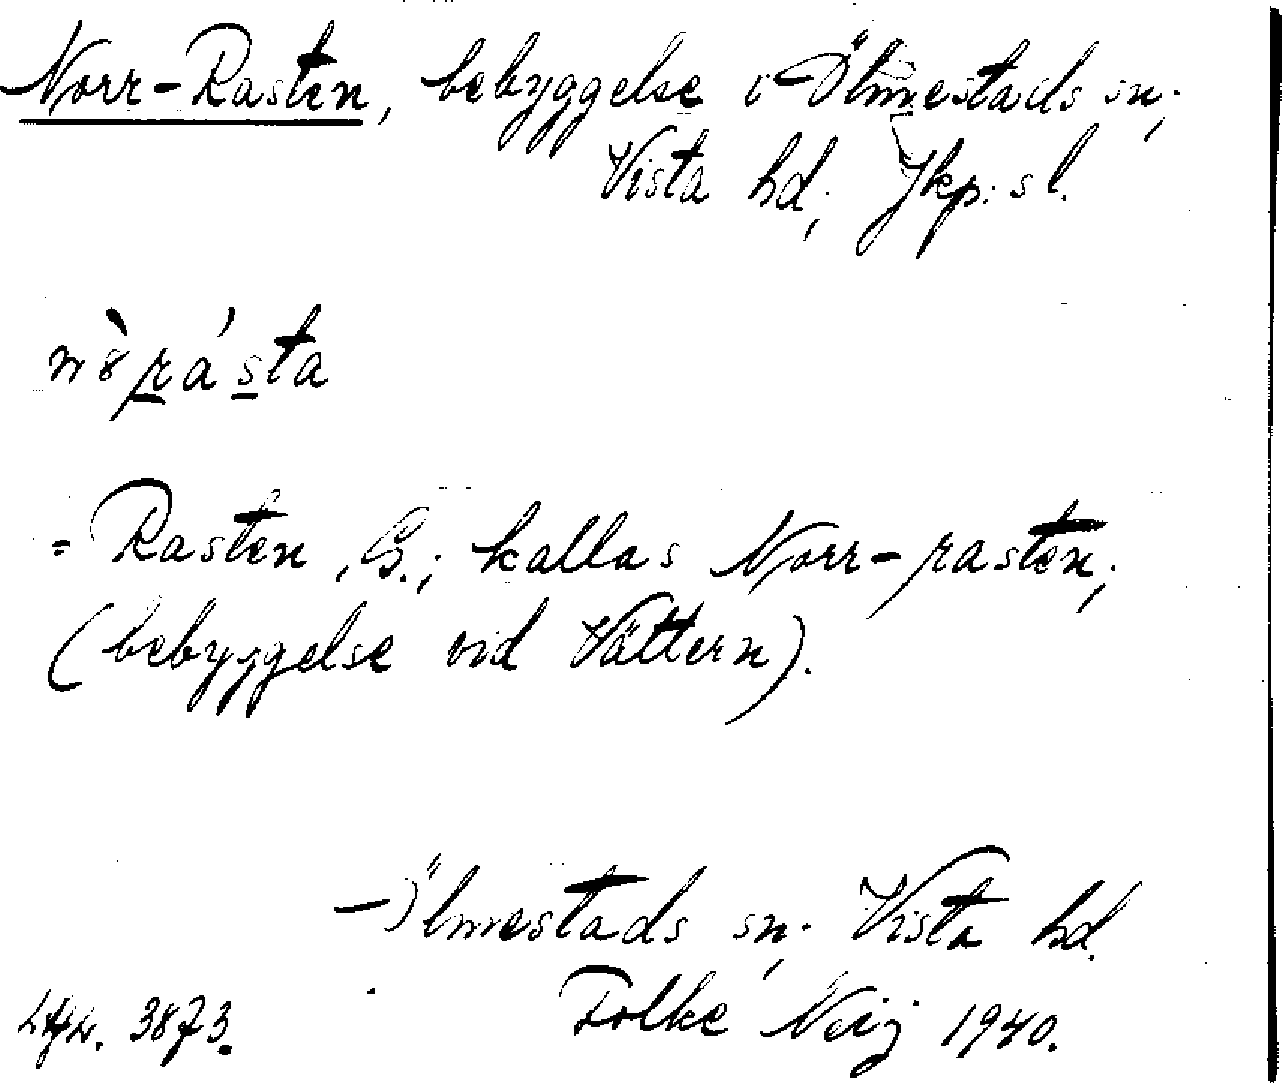 Norr-Rasten, bebyggelse i Ölmestads sn;
Vista hd; Jkp: sl.
= Rasten, G.; kallas Norr-rasten;
(bebyggelse vid Vättern).
Ölmestads sn; Vista hd.
3873. Folke Neij 1940.